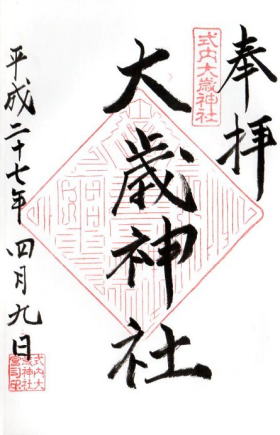 奉拝
式内大歳神社
大歳神社
平成二十七年四月九日
式内大
歳神社
宮司印